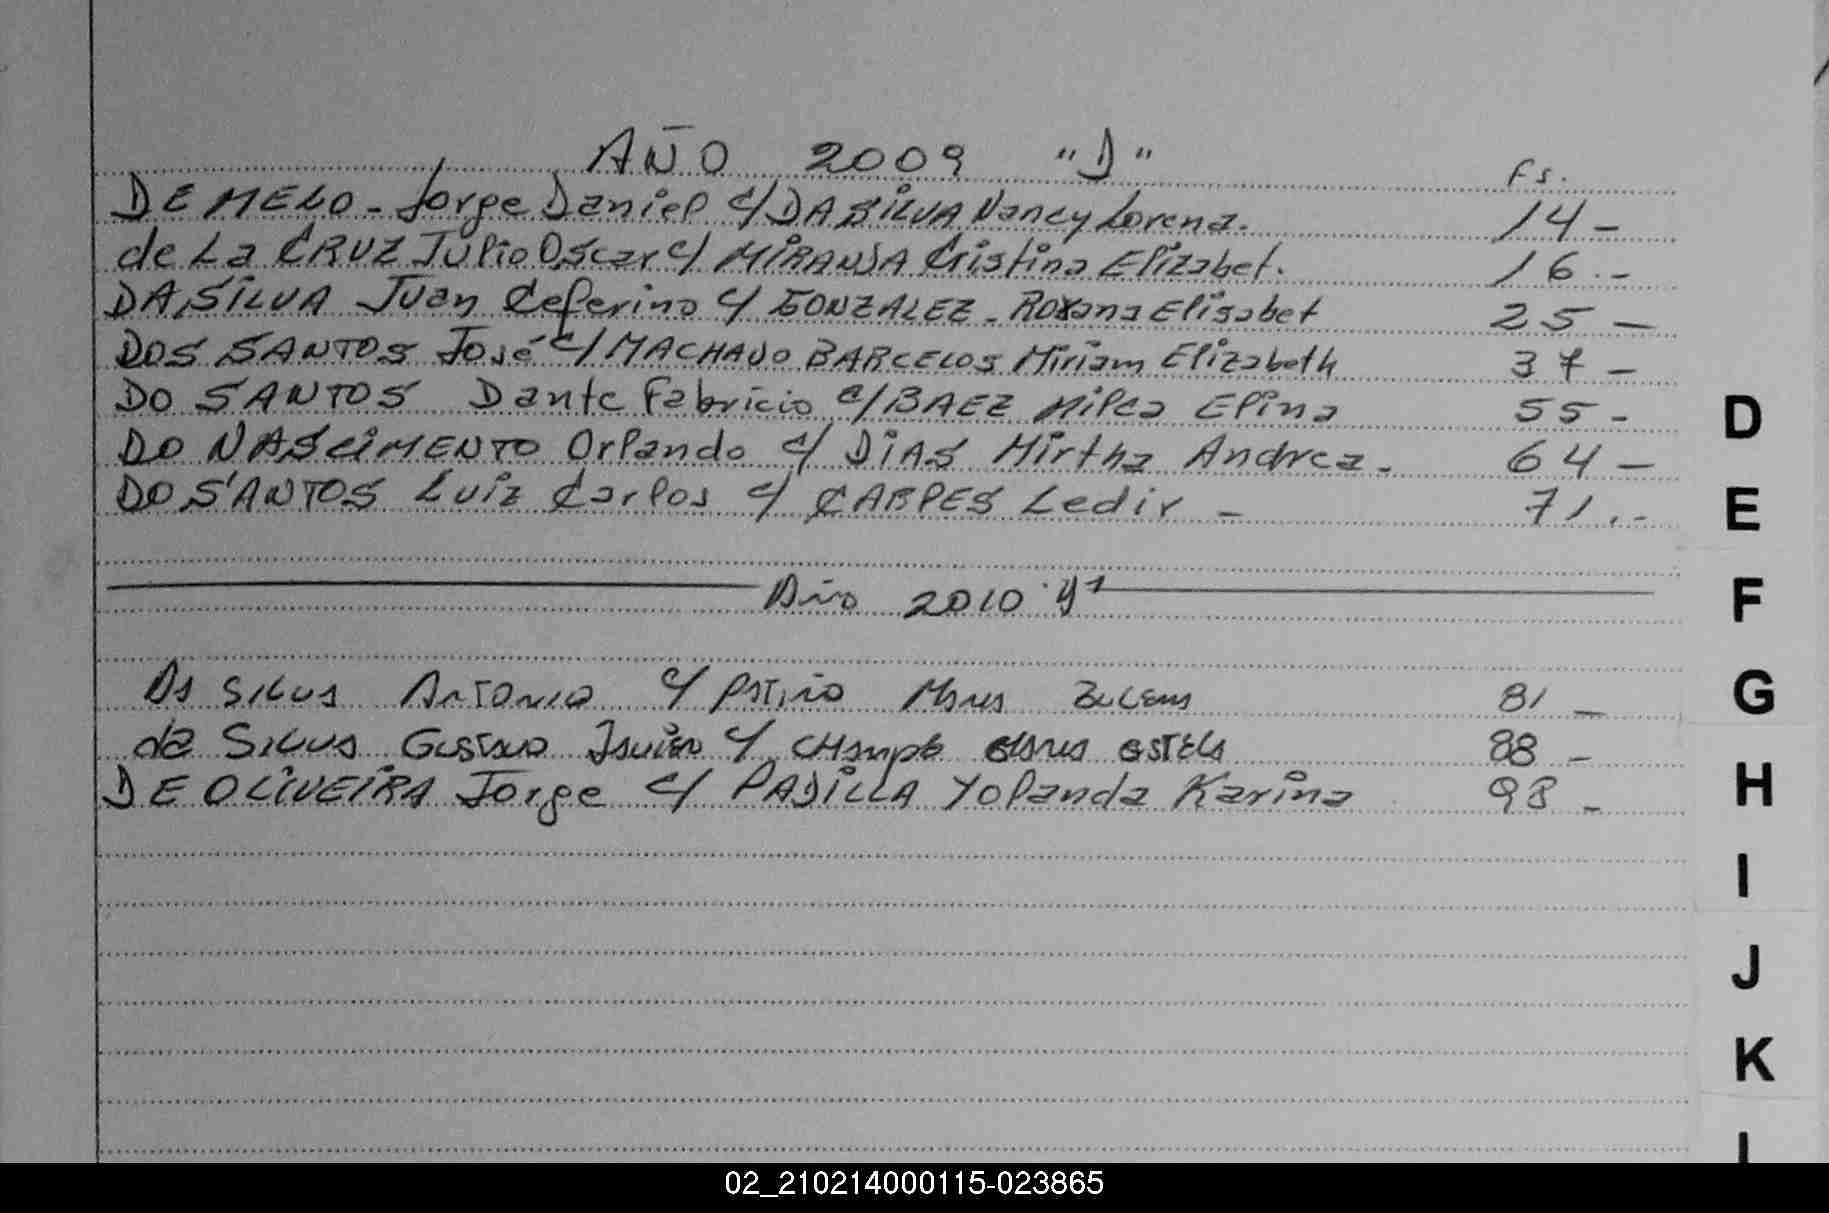 AÑO 2009 "D" Fs.
DE MELO - Jorge Daniel c/ DA SILVA Nancy Lorena. 14 -
de La CRUZ Julio Oscar c/ MIRANDA Cristina Elizabet. 16.-
DA SILVA Juan Ceferino c/ GONZALEZ - Roxana Elisabet 25 -
DOS SANTOS José c/ MACHADO BARCELOS Miriam Elizabeth 37 -
DO SANTOS Dante Fabricio c/ BAEZ Milca Elina 55 -
DO NASCIMENTO Orlando c/ DIAS Mirtha Andrea. 64 -
DO SANTOS Luiz Carlos c/ CARPES Ledir - 71.-
Año 2010
Da Silva Antonio c/ Patiño Maria 81 -
da Silva Gustavo Javier c/ Estela 88 -
DE OLIVEIRA Jorge c/ PADILLA Yolanda Karina 98 -
D
E
F
G
H
I
J
K
L
02_210214000115-023865